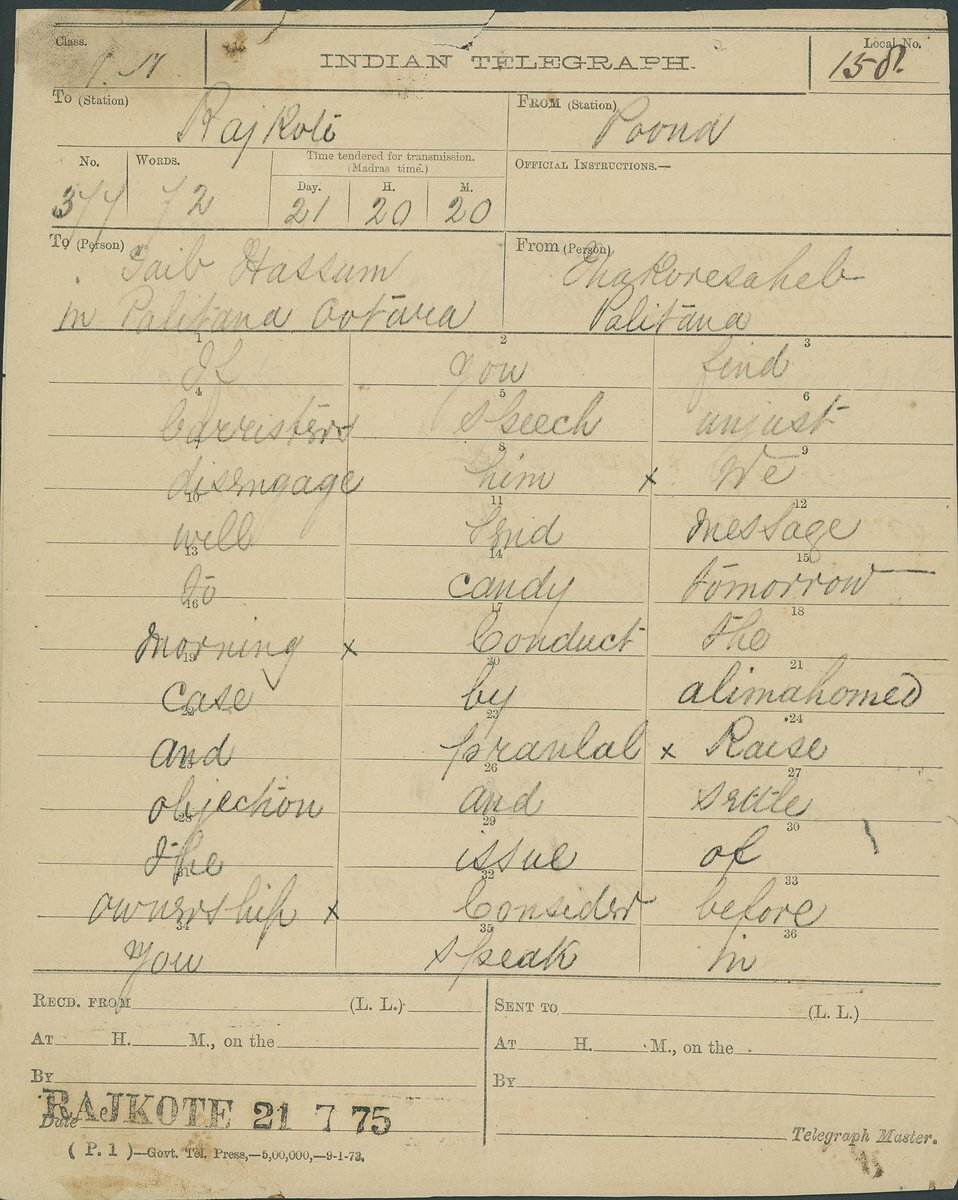 Class. INDIAN TELEGRAPH. Local No.
158.
To (Station) Rajkote FROM (Station) Poona
No. WORDS. Time tendered for transmission. (Madras time.) OFFICIAL INSTRUCTIONS.—
Day. H. M.
72 21 20 20
To (Person) From (Person)
Taib Hassum Thakoresaheb
in Palitana Ootara Palitana
1 2 3
If you find
4 5 6
Barristers speech unjust
7 8 9
disengage him x We
10 11 12
will send message
13 14 15
to candy tomorrow
16 17 18
morning x Conduct the
19 20 21
case by alimahomed
22 23 24
and pranlal x Raise
25 26 27
objection and settle
28 29 30
the issue of
31 32 33
ownership x Consider before
34 35 36
you speak in
RECD. FROM (L. L.) SENT TO (L. L.)
AT H. M., on the AT H. M., on the
BY BY
RAJKOTE 21 7 75
Date Telegraph Master.
( P. 1 )—Govt. Tel. Press,—5,00,000,—9-1-73.